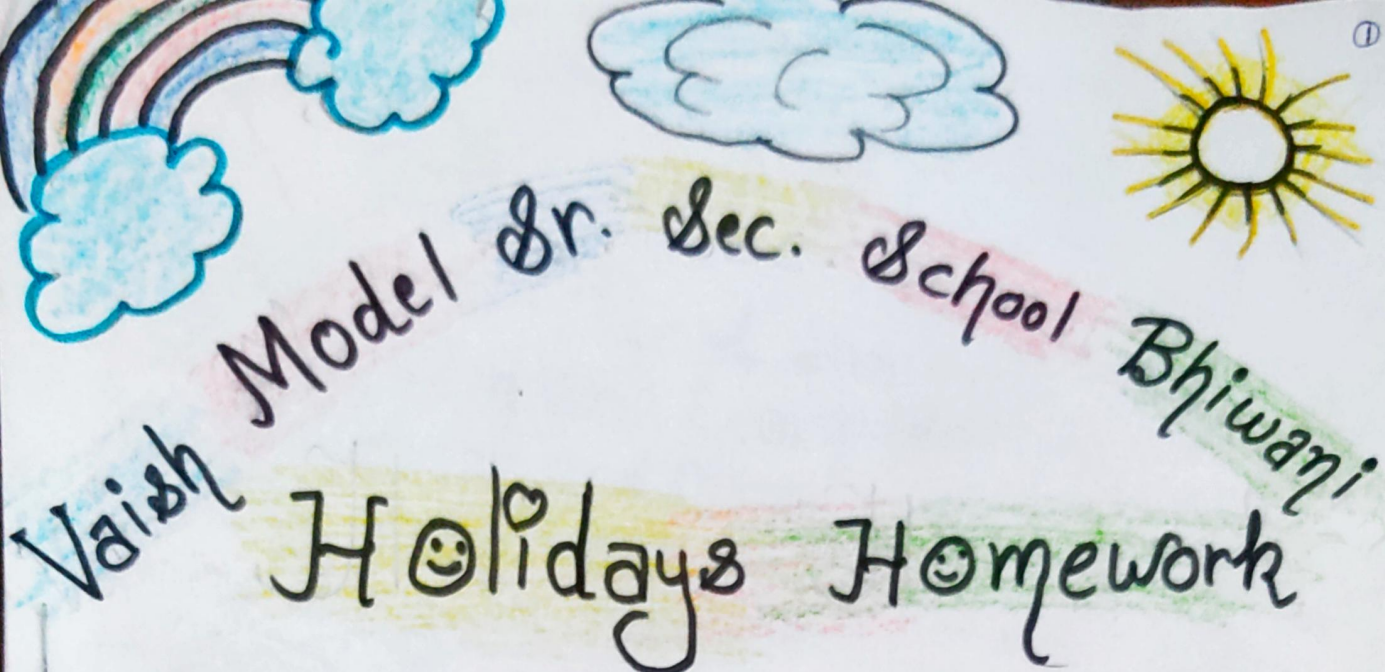 ①
Vaish Model Sr. Sec. School Bhiwani
Holidays Homework